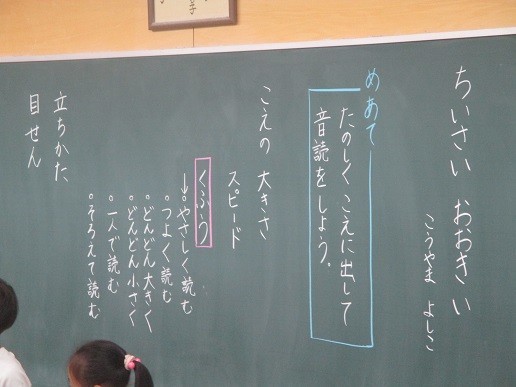 ちいさい おおきい
こうやま よしこ
めあて
たのしくこえに出して
音読をしよう。
こえの大きさ
スピード
くふう
↓。やさしく読む
。つよく読む
。どんどん大きく
。どんどん小さく
。一人で読む
。そろえて読む
立ちかた
目せん